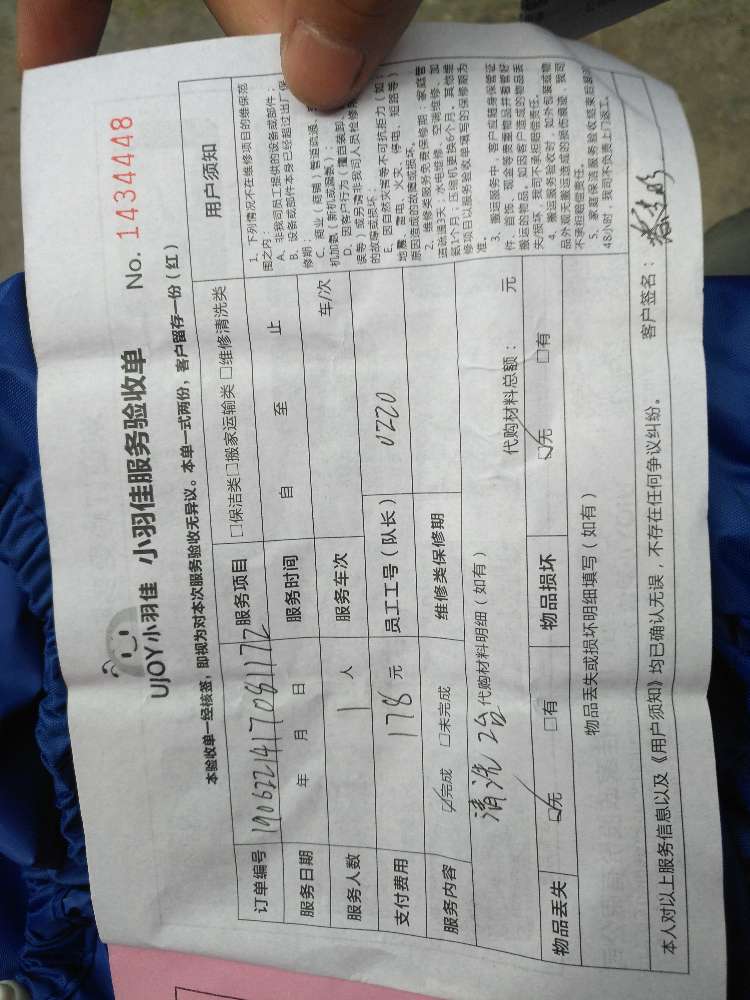 UJOY小羽佳 小羽佳服务验收单 No. 1434448
本验收单一经核签，即视为对本次服务验收无异议。本单一式两份，客户留存一份（红）
订单编号 190622141708 1172 服务项目 □保洁类□搬家运输类 □维修清洗类
服务日期 年 月 日 服务时间 自 至 止
服务人数 1 人 服务车次 车/次
支付费用 178 元 员工工号（队长） 0220
服务内容 ☑完成 □未完成 维修类保修期
清洗 2台 代购材料明细（如有） 代购材料总额： 元
物品丢失 ☑无 □有 物品损坏 ☑无 □有
物品丢失或损坏明细填写（如有）
用户须知
1、下列情况不在维修项目的维保范
围之内
A、非我司员工提供的设备或部件；
B、设备或部件本身已经超过出厂保
修期；
C、商业（商铺）管道疏通、
机加氨（新机或漏氨）；
D、因客户行为（擅自装卸
误等）或另请非我司人员检修
的故障或损坏；
E、因自然灾害等不可抗拒力（如：
地震、雷电、火灾、停电、短路等）
原因造成的故障或损坏。
2、维修类服务免费保修期：家庭管
道疏通3天；水电维修、空调维修、加
氨1个月；压缩机更换6个月，其他维
修项目以服务验收单填写的保修期为
准。
3、搬运服务中，客户应随身保管证
件、首饰、现金等贵重物品并看管好
搬运的物品。如因客户造成的物品丢
失/损坏，我司不承担赔偿责任。
4、搬运服务验收时，如外包装或物
品外观无搬运造成的损伤痕迹，我司
不承担赔偿责任。
5、家庭保洁服务验收结束后超过
48小时，我司不负责上门返工。
本人对以上服务信息以及《用户须知》均已确认无误，不存在任何争议纠纷。 客户签名：